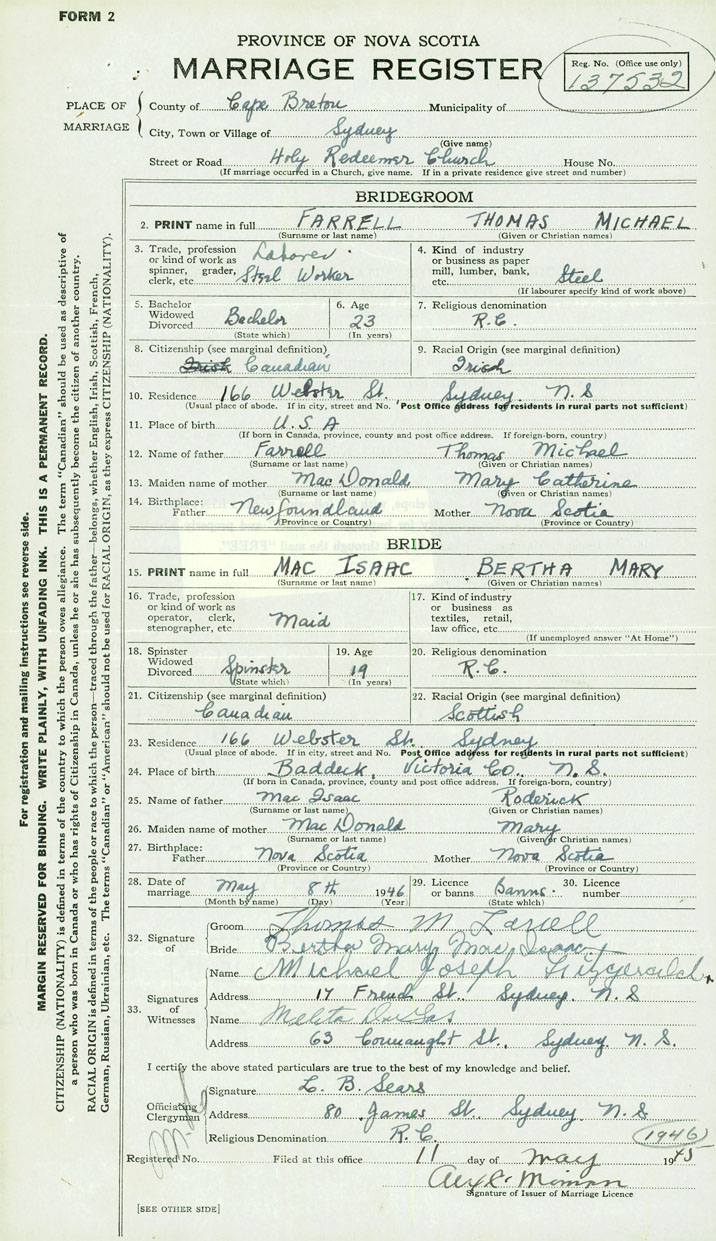 FORM 2
PROVINCE OF NOVA SCOTIA
MARRIAGE REGISTER
Reg. No. (Office use only)
137532
PLACE OF MARRIAGE
County of Cape Breton Municipality of
City, Town or Village of Sydney
(Give name)
Street or Road Holy Redeemer Church House No.
(If marriage occurred in a Church, give name. If in a private residence give street and number)
BRIDEGROOM
2. PRINT name in full FARRELL THOMAS MICHAEL
(Surname or last name) (Given or Christian names)
3. Trade, profession or kind of work as spinner, grader, clerk, etc. Laborer. Steel Worker
4. Kind of industry or business as paper mill, lumber, bank, etc. Steel
(If labourer specify kind of work above)
5. Bachelor Widowed Divorced Bachelor
(State which)
6. Age 23
(In years)
7. Religious denomination
R.C.
8. Citizenship (see marginal definition)
Irish Canadian
9. Racial Origin (see marginal definition)
Irish
10. Residence 166 Webster St. Sydney N.S
(Usual place of abode. If in city, street and No. Post Office address for residents in rural parts not sufficient)
11. Place of birth U.S.A
(If born in Canada, province, county and post office address. If foreign-born, country)
12. Name of father Farrell Thomas Michael
(Surname or last name) (Given or Christian names)
13. Maiden name of mother Mac Donald Mary Catherine
(Surname or last name) (Given or Christian names)
14. Birthplace: Father Newfoundland Mother Nova Scotia
(Province or Country) (Province or Country)
BRIDE
15. PRINT name in full MAC ISAAC BERTHA MARY
(Surname or last name) (Given or Christian names)
16. Trade, profession or kind of work as operator, clerk, stenographer, etc. Maid
17. Kind of industry or business as textiles, retail, law office, etc.
(If unemployed answer "At Home")
18. Spinster Widowed Divorced Spinster
(State which)
19. Age 19
(In years)
20. Religious denomination
R.C.
21. Citizenship (see marginal definition)
Canadian
22. Racial Origin (see marginal definition)
Scottish
23. Residence 166 Webster St. Sydney
(Usual place of abode. If in city, street and No. Post Office address for residents in rural parts not sufficient)
24. Place of birth Baddeck, Victoria Co., N.S.
(If born in Canada, province, county and post office address. If foreign-born, country)
25. Name of father Mac Isaac Roderick
(Surname or last name) (Given or Christian names)
26. Maiden name of mother Mac Donald Mary
(Surname or last name) (Given or Christian names)
27. Birthplace: Father Nova Scotia Mother Nova Scotia
(Province or Country) (Province or Country)
28. Date of marriage May 8th 1946
(Month by name) (Day) (Year)
29. Licence or banns Banns.
(State which)
30. Licence number
32. Signature of
Groom Thomas M Farrell
Bride Bertha Mary Mac Isaac
33. Signatures of Witnesses
Name Michael Joseph Fitzgerald
Address 17 French St. Sydney. N.S
Name Melita
Address 63 Connaught St., Sydney. N.S.
I certify the above stated particulars are true to the best of my knowledge and belief.
Officiating Clergyman
Signature L. B. Sears
Address 80 James St. Sydney N.S
Religious Denomination R.C. 1946
Registered No. Filed at this office 11 day of May 1945
Signature of Issuer of Marriage Licence
[SEE OTHER SIDE]
For registration and mailing instructions see reverse side.
MARGIN RESERVED FOR BINDING. WRITE PLAINLY, WITH UNFADING INK. THIS IS A PERMANENT RECORD.
CITIZENSHIP (NATIONALITY) is defined in terms of the country to which the person owes allegiance. The term "Canadian" should be used as descriptive of
a person who was born in Canada or who has rights of Citizenship in Canada, unless he or she has subsequently become the citizen of another country.
RACIAL ORIGIN is defined in terms of the people or race to which the person—traced through the father—belongs, whether English, Irish, Scottish, French,
German, Russian, Ukrainian, etc. The terms "Canadian" or "American" should not be used for RACIAL ORIGIN, as they express CITIZENSHIP (NATIONALITY).